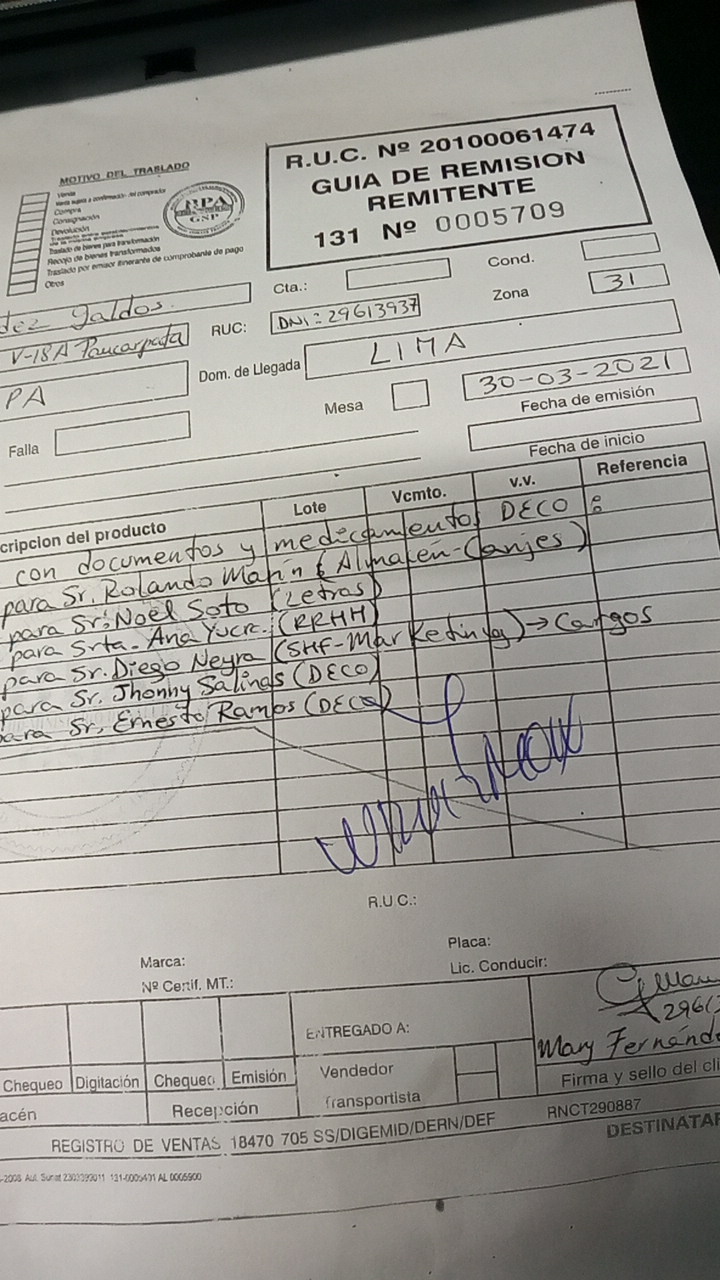 MOTIVO DEL TRASLADO
Venta
Venta sujeta a confirmación del comprador
Compra
Consignación
Devolución
Traslado de bienes para transformación
Recojo de bienes transformados
Traslado por emisor itinerante de comprobante de pago
Otros
BPA
GSP
R.U.C. Nº 20100061474
GUIA DE REMISION
REMITENTE
131 Nº 0005709
Cta.:
Cond.
dez Galdos.
RUC:
DNI: 29613937
Zona
31
V-18A Paucarpata
Dom. de Llegada
LIMA
PA
Mesa
30-03-2021
Fecha de emisión
Falla
Fecha de inicio
cripcion del producto
Lote
Vcmto.
v.v.
Referencia
con documentos y medicamentos DECO :
para Sr. Rolando Marín (Almacén-Canjes)
para Sr. Noel Soto (Letras)
para Srta. Ana Yucra. (RRHH)
para Sr. Diego Neyra (SHF-Marketing) → Cargos
para Sr. Jhonny Salinas (DECO)
para Sr. Ernesto Ramos (DECO)
R.U.C.:
Marca:
Placa:
Nº Certif. MT.:
Lic. Conducir:
ENTREGADO A:
296
Mary Fernánd
Chequeo
Digitación
Chequeo
Emisión
Vendedor
Firma y sello del cli
acén
Recepción
Transportista
REGISTRO DE VENTAS 18470 705 SS/DIGEMID/DERN/DEF
RNCT290887
DESTINATAR
-2008 Aut. Sunat 2303399011 131-0005401 AL 0005900